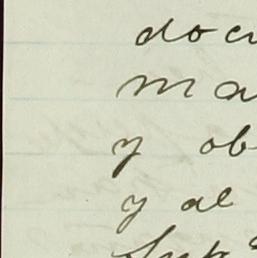 docu
ma
y ob
y al
Sup